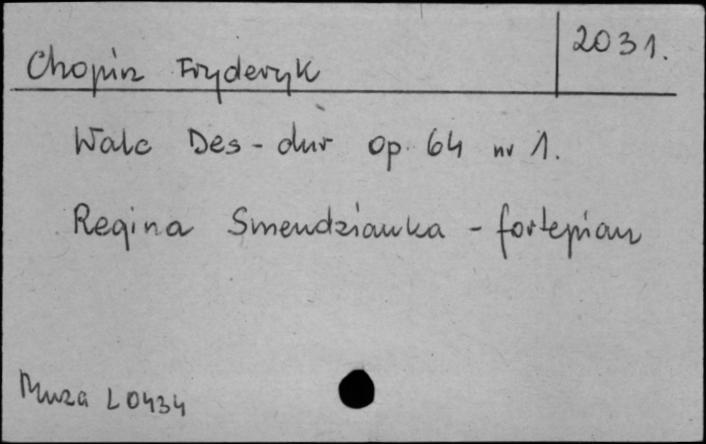 Chopin Fryderyk 2031.
Walc Des-dur op. 64 nr 1.
Regina Smendzianka - fortepian
Muza L0434